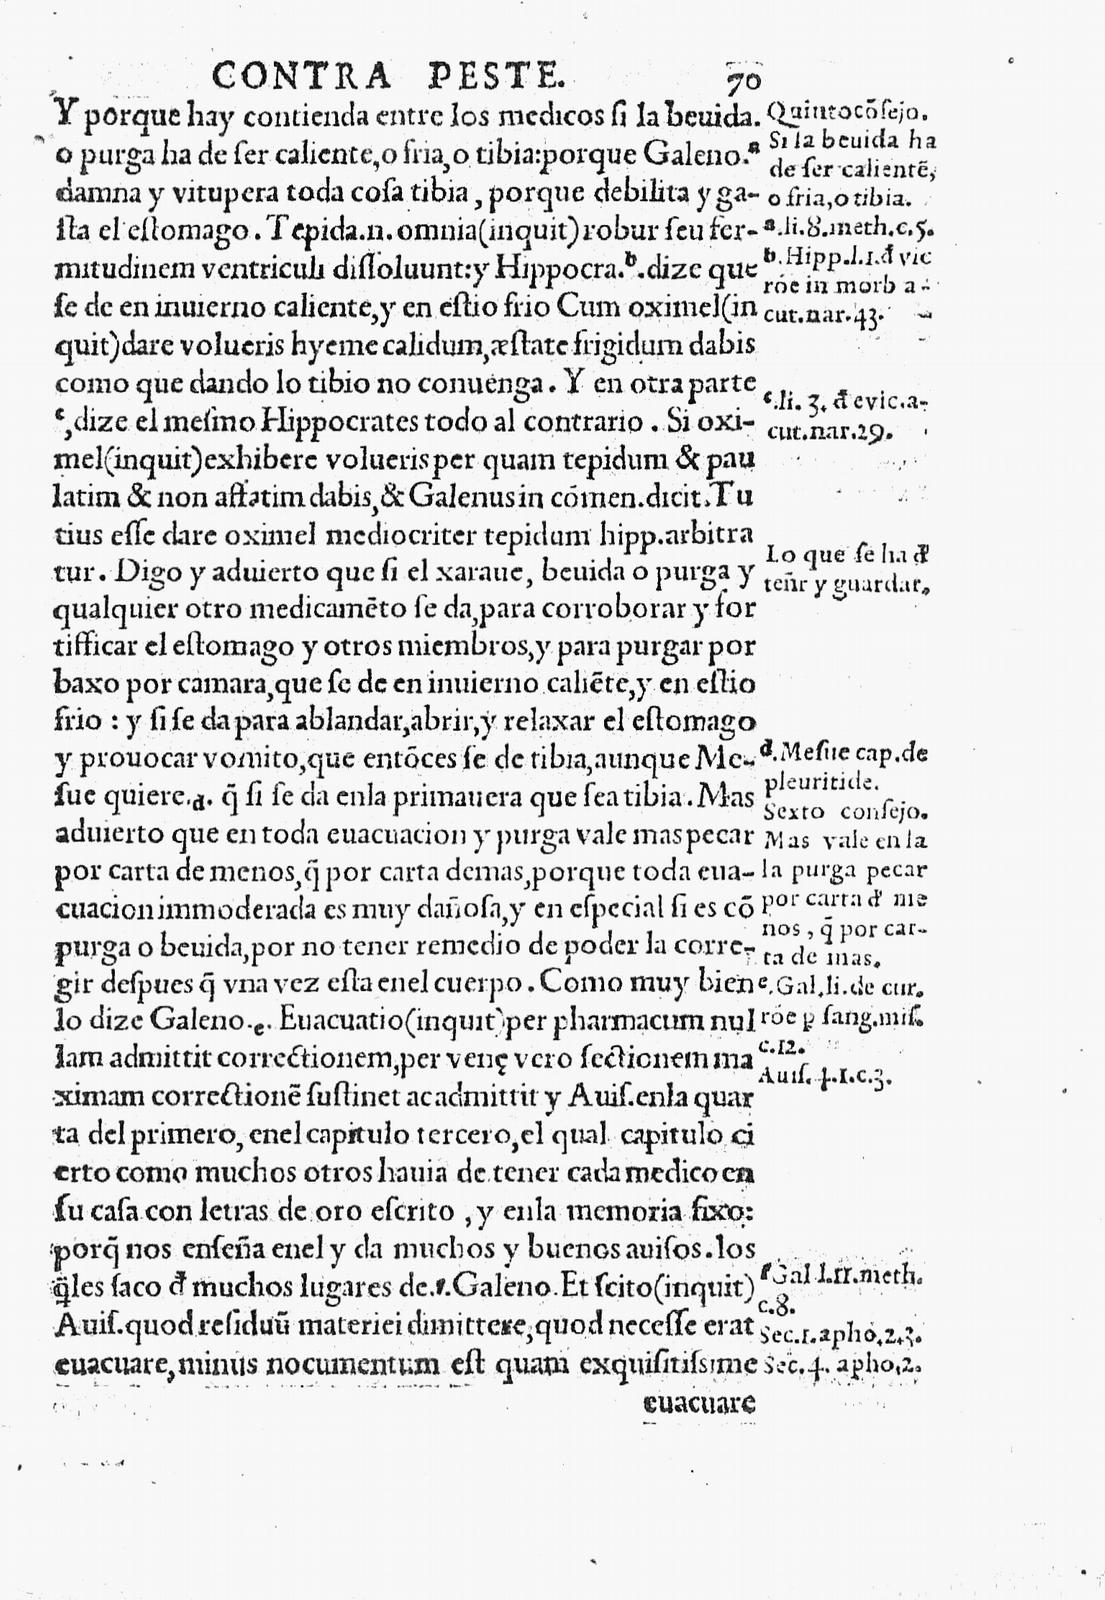 CONTRA PESTE. 70
Y porque hay contienda entre los medicos ſi la beuida.
o purga ha de ſer caliente,o fria,o tibia:porque Galeno.ᵃ
damna y vitupera toda coſa tibia, porque debilita y ga-
ſta el eſtomago. Tepida.n.omnia(inquit)robur ſeu fer-
mitudinem ventriculi diſſoluunt:y Hippocra.ᵇ.dize que
ſe de en inuierno caliente,y en eſtio frio Cum oximel(in
quit)dare volueris hyeme calidum,æſtate frigidum dabis
como que dando lo tibio no conuenga. Y en otra parte
ᶜ,dize el meſmo Hippocrates todo al contrario. Si oxi-
mel(inquit)exhibere volueris per quam tepidum & pau
latim & non aſtatim dabis,& Galenus in cōmen.dicit.Tu
tius eſſe dare oximel mediocriter tepidum hipp.arbitra
tur. Digo y aduierto que ſi el xaraue, beuida o purga y
qualquier otro medicamēto ſe da,para corroborar y for
tifficar el eſtomago y otros miembros,y para purgar por
baxo por camara,que ſe de en inuierno caliēte,y en eſtio
frio : y ſi ſe da para ablandar,abrir,y relaxar el eſtomago
y prouocar vomito,que entōces ſe de tibia,aunque Me-
ſue quiere.d. q̄ ſi ſe da enla primauera que ſea tibia. Mas
aduierto que en toda euacuacion y purga vale mas pecar
por carta de menos,q̄ por carta demas,porque toda eua-
cuacion immoderada es muy dañoſa,y en eſpecial ſi es cō
purga o beuida,por no tener remedio de poder la corre-
gir deſpues q̄ vna vez eſta enel cuerpo. Como muy bien
lo dize Galeno.e. Euacuatio(inquit)per pharmacum nul
lam admittit correctionem,per venę vero ſectionem ma
ximam correctionē ſuſtinet ac admittit y Auiſ.enla quar
ta del primero, enel capitulo tercero,el qual capitulo ci
erto como muchos otros hauia de tener cada medico en
ſu caſa con letras de oro eſcrito , y enla memoria fixo:
porq̄ nos enſeña enel y da muchos y buenos auiſos. los
q̄les ſaco đ muchos lugares de.f.Galeno.Et ſcito(inquit)
Auiſ.quod reſiduū materiei dimittere,quod neceſſe erat
euacuare,minus nocumentum eſt quam exquiſitiſsime
euacuare
Quinto cōſejo.
Si la beuida ha
de ſer calientē,
o fria,o tibia.
a.li.8.meth.c.5.
b.Hipp.l.1.đ vic
róe in morb a-
cut.nar.43.
c.li. 3. đ evic.a-
cut.nar.29.
Lo que ſe ha đ
teñr y guardar.
d.Meſue cap.de
pleuritide.
Sexto conſejo.
Mas vale en la
la purga pecar
por carta đ me
nos , q̄ por car-
ta de mas.
e.Gal.li.de cur.
róe ꝑ ſang.miſ.
c.12.
Auiſ. 4.1.c.3.
f Gal l.11.meth.
c.8.
Sec.1.apho.2.3.
Sec.4. apho.2.